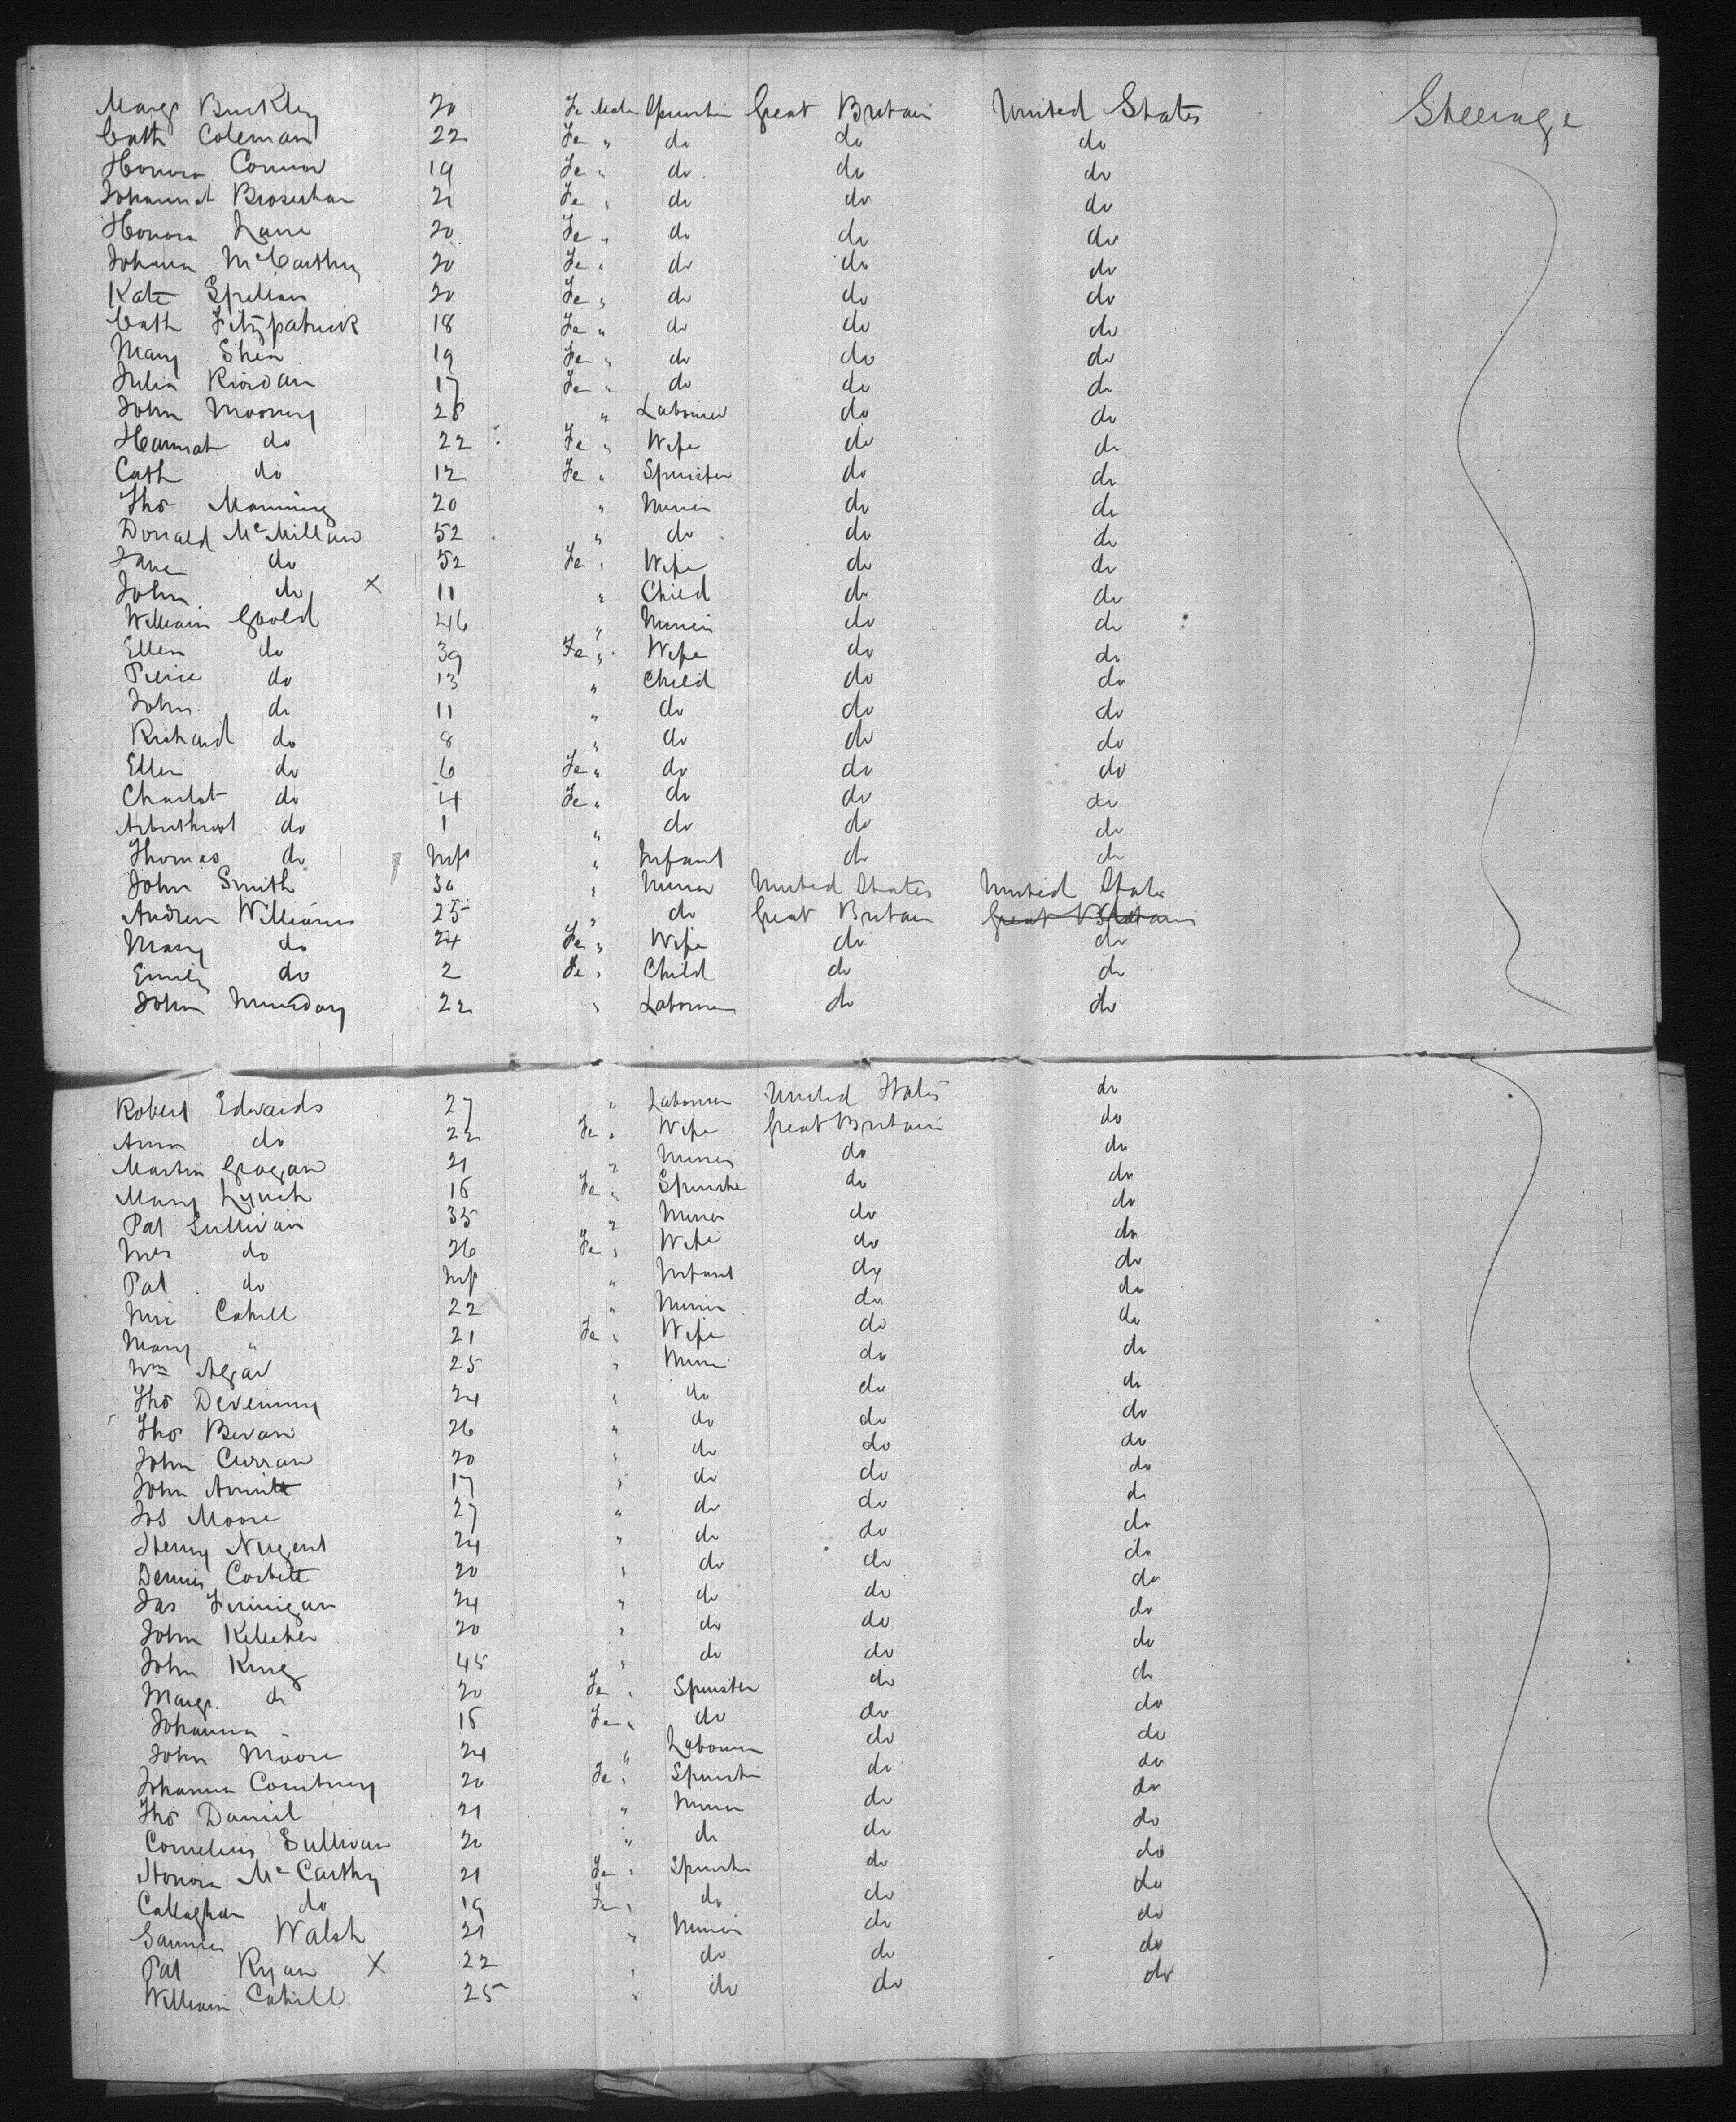 Marg Buckley 20 Fe Male Spinster Great Britain United States Steerage
Cath Coleman 22 Fe " do do do
Honora Connor 19 Fe " do do do
Johannah Brosnahan 21 Fe " do do do
Honora Lane 20 Fe " do do do
Johanna McCarthy 20 Fe " do do do
Kate Spillan 20 Fe " do do do
Cath Fitzpatrick 18 Fe " do do do
Mary Shea 19 Fe " do do do
Julia Riordan 17 Fe " do do do
John Mooney 28 " Labourer do do
Hannah do 22 Fe " Wife do do
Cath do 12 Fe " Spinster do do
Thos Manning 20 " Miner do do
Donald McMillan 52 " do do do
Jane do 52 Fe " Wife do do
John do X 11 " Child do do
William Goold 46 " Miner do do
Ellen do 39 Fe " Wife do do
Pierce do 13 " Child do do
John do 11 " do do do
Richard do 8 " do do do
Ellen do 6 Fe " do do do
Charlot do 4 Fe " do do do
Arbuthnot do 1 " do do do
Thomas do Inft " Infant do do
John Smith 30 " Miner United States United States
Andrew Williams 25 " do Great Britain Great Britain
Mary do 24 Fe " Wife do do
Emily do 2 Fe " Child do do
John Munday 22 " Labourer do do
Robert Edwards 27 " Labourer United States do
Anna do 22 Fe " Wife Great Britain do
Martin Grogan 21 " Miner do do
Mary Lynch 18 Fe " Spinster do do
Pat Sullivan 35 " Miner do do
Mrs do 26 Fe " Wife do do
Pat do Inft " Infant do do
Cahill 22 " Miner do do
Mary " 21 Fe " Wife do do
Wm Algar 25 " Miner do do
Thos Devenny 24 " do do do
Thos Bevan 26 " do do do
John Curran 20 " do do do
John 17 " do do do
Jos Moore 27 " do do do
Henry Nugent 24 " do do do
Dennis Corbett 20 " do do do
Jas Finnigan 24 " do do do
John Kelleher 20 " do do do
John King 45 " do do do
Marg do 20 Fe " Spinster do do
Johanna " 18 Fe " do do do
John Moore 24 " Labourer do do
Johanna Courtney 20 Fe " Spinster do do
Thos Daniel 21 " Miner do do
Cornelius Sullivan 20 " do do do
Honora McCarthy 21 Fe " Spinster do do
Callaghan do 19 Fe " do do do
Walsh 21 " Miner do do
Pat Ryan X 22 " do do do
William Cahill 25 " do do do